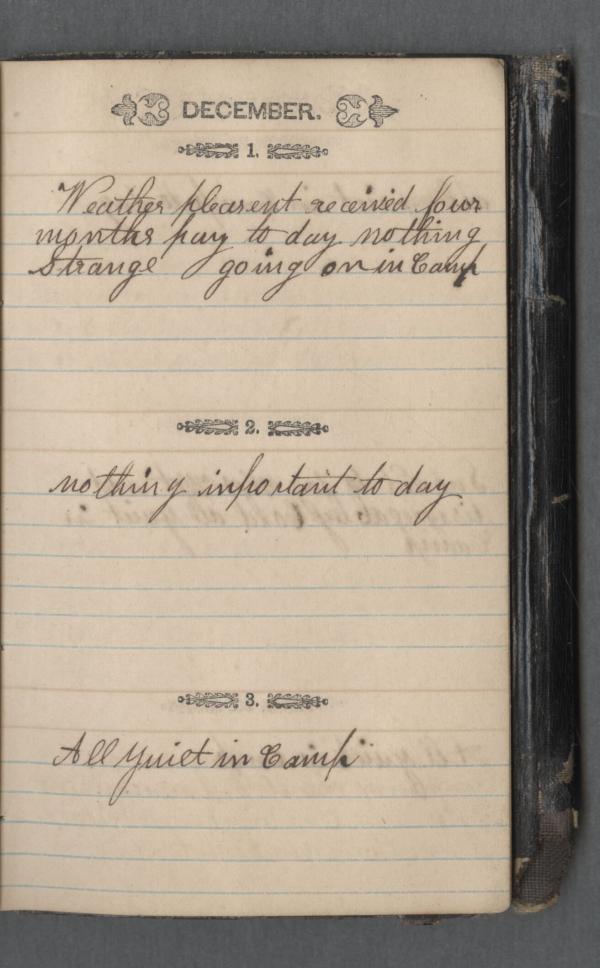 DECEMBER.
1.
Weather pleasent received four
months pay to day nothing
strange going on in Camp
2.
nothing inportant to day
3.
All quiet in Camp